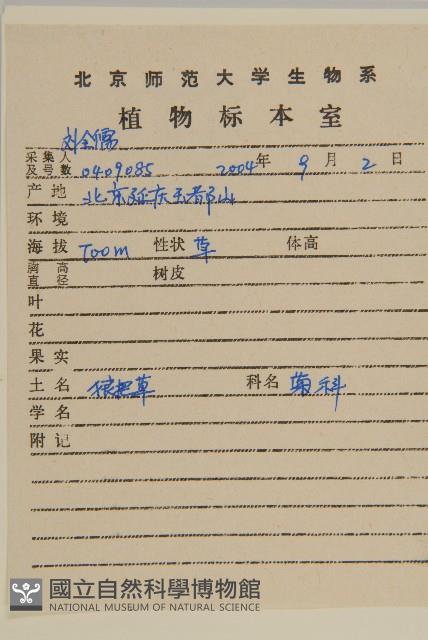 北京师范大学生物系
植物标本室
刘全儒
采集人及号数 0409085 2004年 9月 2日
产地 北京延庆玉渡山
环境
海拔 700m 性状 草 体高
胸高直径 树皮
叶
花
果实
土名 狼把草 科名 菊科
学名
附记
國立自然科學博物館
NATIONAL MUSEUM OF NATURAL SCIENCE